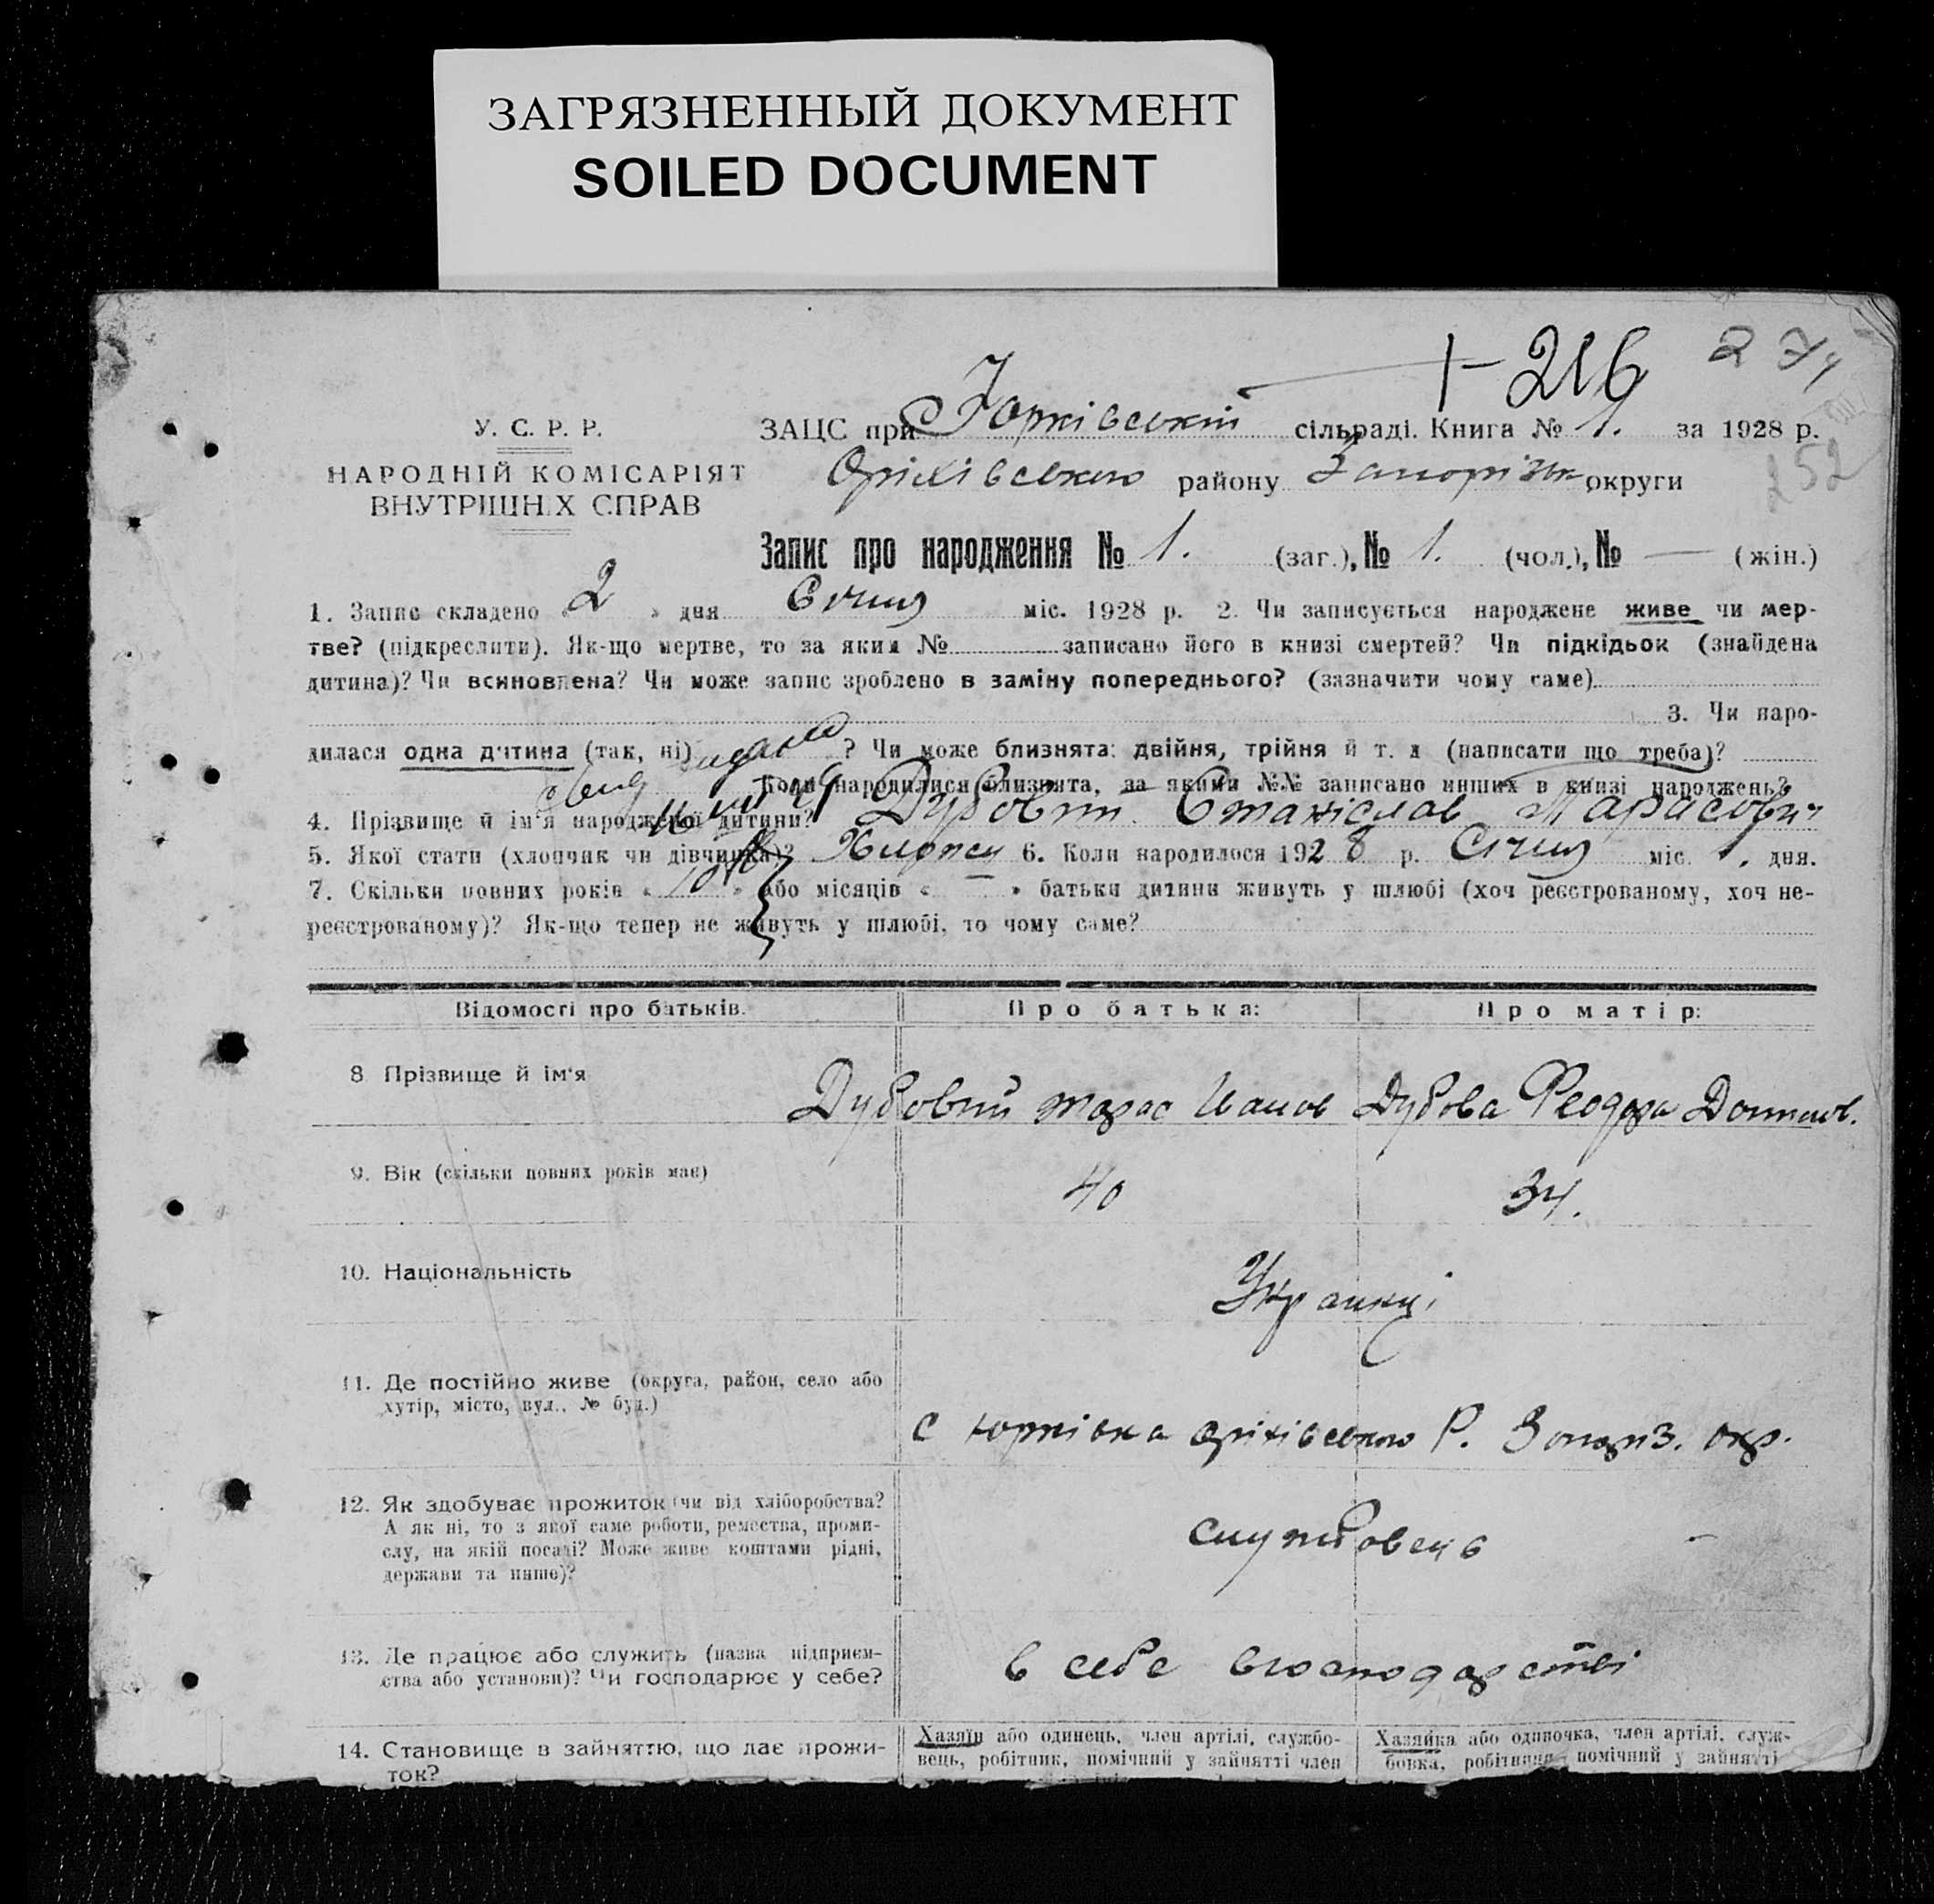 ЗАГРЯЗНЕННЫЙ ДОКУМЕНТ
SOILED DOCUMENT
1-216
У. С. Р. Р.
НАРОДНІЙ КОМІСАРІЯТ
ВНУТРІШНІХ СПРАВ
ЗАЦС при Юрківській сільраді. Книга № 1. за 1928 р.
Оріхівського району Запорізьк округи
252
Запис про народження № 1. (заг.), № 1. (чол.), № — (жін.)
1. Запис складено « 2 » дня Січня міс. 1928 р. 2. Чи записується народжене живе чи мер-
тве? (підкреслити). Як-що мертве, то за яким № записано його в книзі смертей? Чи підкідьок (знайдена
дитина)? Чи всиновлена? Чи може запис зроблено в заміну попереднього? (зазначити чому саме)
3. Чи наро-
дилася одна дитина (так, ні) ? Чи може близнята: двійня, трійня й т. д (написати що треба)?
Коли народилися близнята, за якими №№ записано инших в книзі народжень?
4. Прізвище й ім'я народженої дитини? Дубовий Станіслав Тарасович
5. Якої стати (хлопчик чи дівчинка)? Хлопец 6. Коли народилося 1928 р. Січня міс. 1. дня.
7. Скільки повних років « » або місяців « — » батьки дитини живуть у шлюбі (хоч реєстрованому, хоч не-
реєстрованому)? Як-що тепер не живуть у шлюбі, то чому саме?
Відомості про батьків. Про батька: Про матір:
8 Прізвище й ім'я Дубовий Тарас Иванов Дубова Феодора
9. Вік (скільки повних років має) 40 34.
10. Національність Українці
11. Де постійно живе (округа, район, село або
хутір, місто, вул., № буд.)
с Юрківка Оріхівського Р. Запоріз. окр.
12. Як здобуває прожиток (чи від хліборобства?
А як ні, то з якої саме роботи, ремества, проми-
слу, на якій посаді? Може живе коштами рідні,
держави та инше)?
служbовець –
13. Де працює або служить (назва підприєм-
ства або установи)? Чи господарює у себе?
в себе вгосподарстві
14. Становище в зайняттю, що дає прожи-
ток?
Хазяїн або одинець, член артілі, службо-
вець, робітник, помічний у зайнятті член
Хазяйка або одиночка, член артілі, служ-
бовка, робітниця, помічний у зайнятті